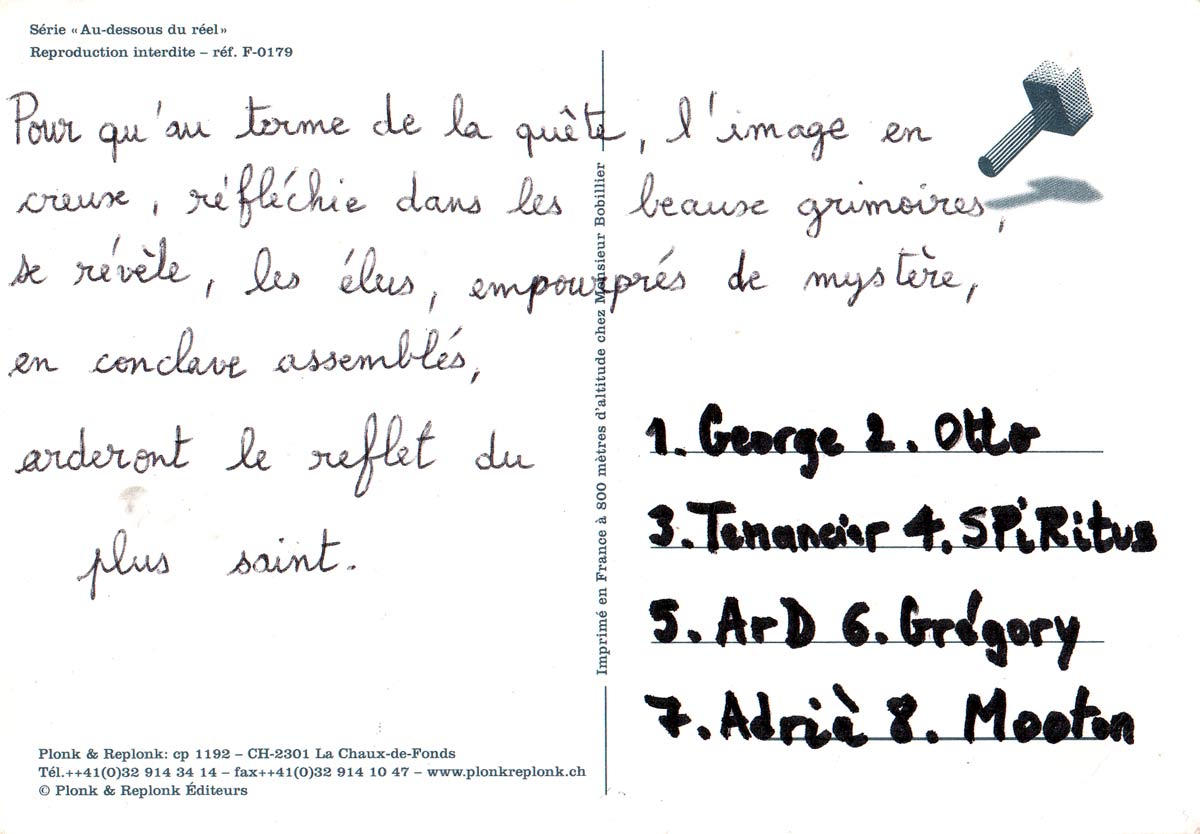 Série «Au-dessous du réel»
Reproduction interdite – réf. F-0179
Pour qu'au terme de la quête, l'image en
creuse, réfléchie dans les beause grimoires,
se révèle, les élus, empourprés de mystère,
en conclave assemblés,
arderont le reflet du
plus saint.
Imprimé en France à 800 mètres d'altitude chez Monsieur Bobillier
1. George 2. Otto
3. Tenancier 4. SPiRitus
5. ArD 6. Grégory
7. Adrià 8. Mooton
Plonk & Replonk: cp 1192 – CH-2301 La Chaux-de-Fonds
Tél.++41(0)32 914 34 14 – fax++41(0)32 914 10 47 – www.plonkreplonk.ch
© Plonk & Replonk Éditeurs